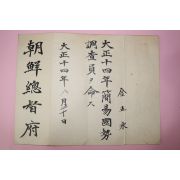 金玉永
大正十四年簡易國勢
調査員ヲ命ス
大正十四年八月二十日
朝鮮總督府